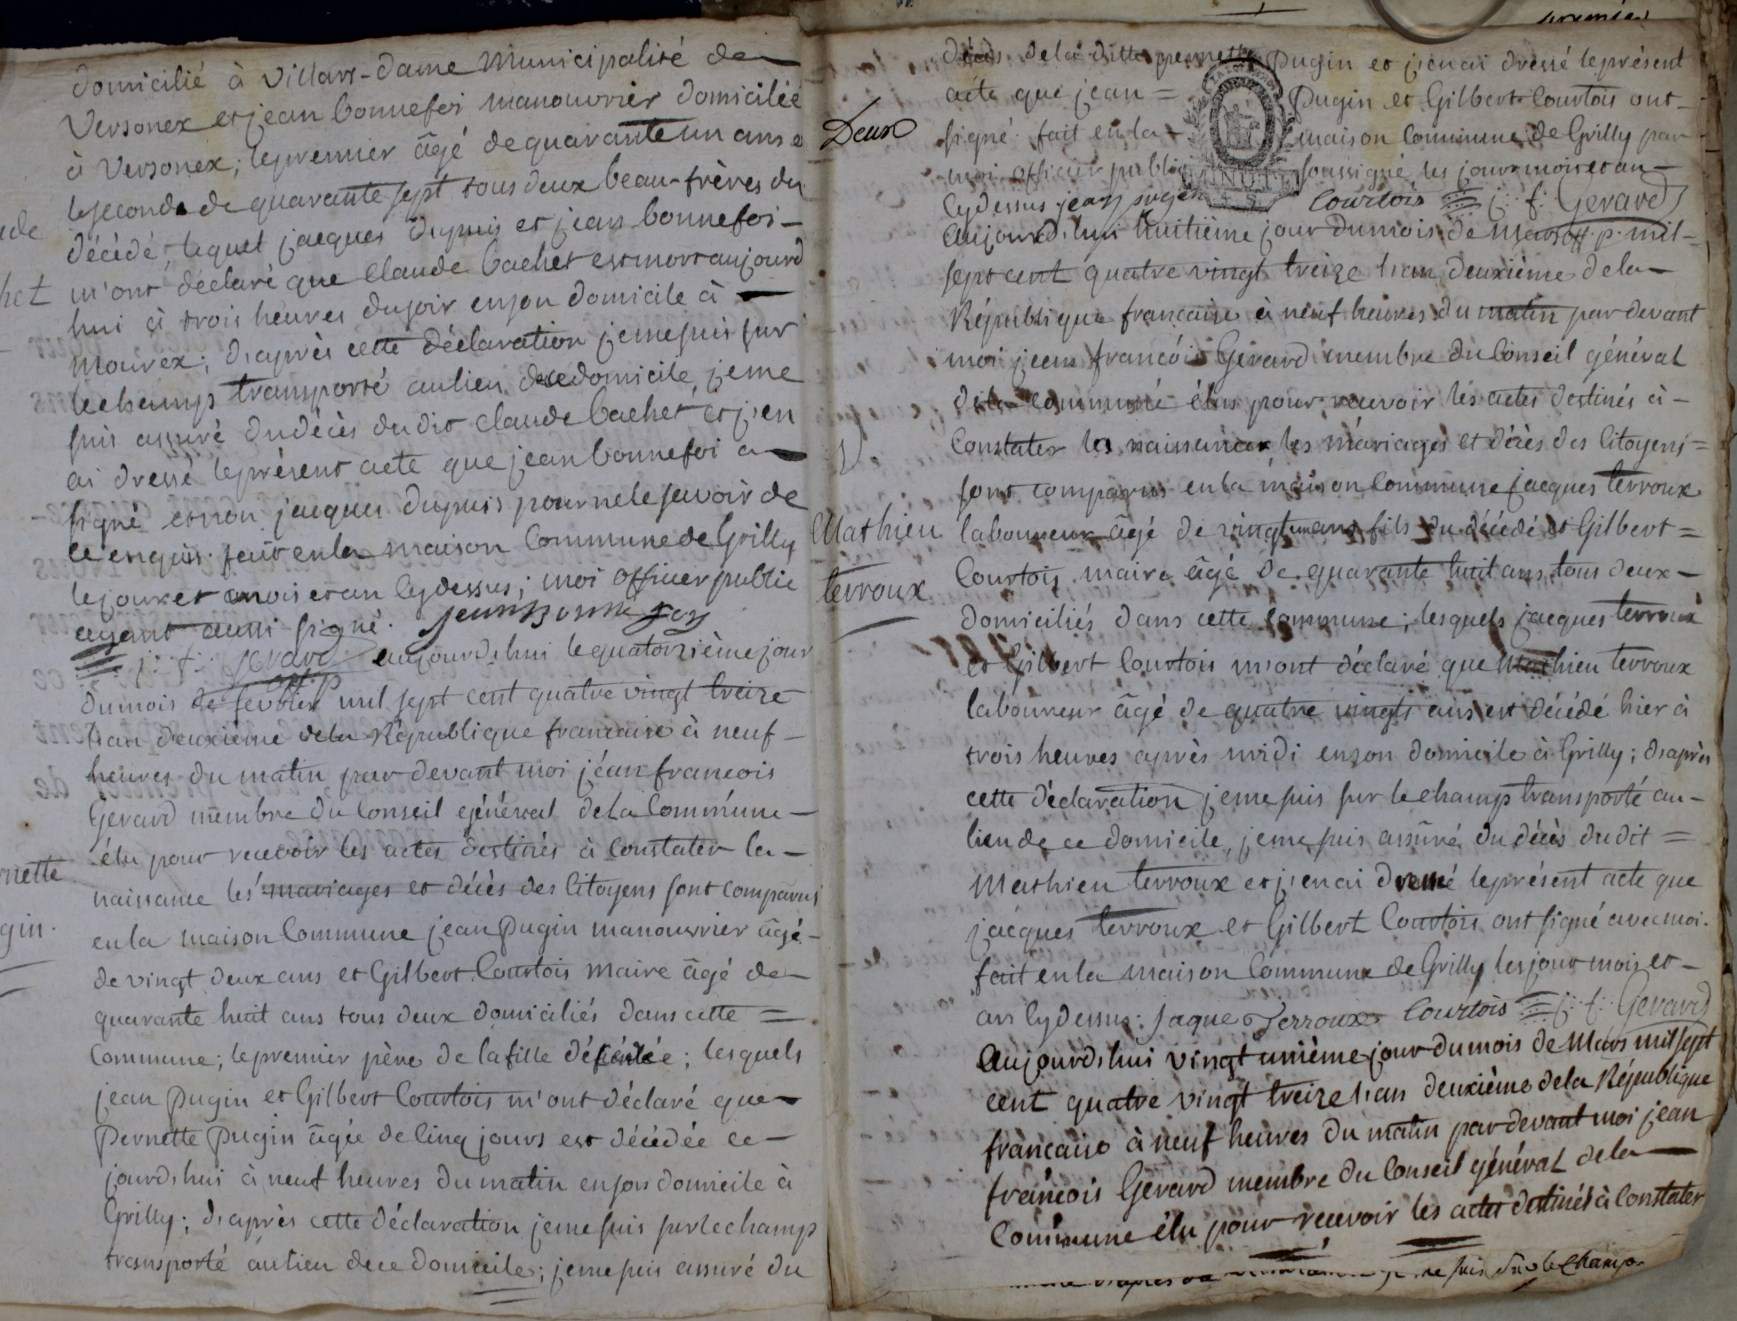 domicilié à Villars-dame Municipalité de
Versonex et jean bonnefoi manouvrier domicilié
à Versonex; le premier âgé de quarante un ans
le second de quarante sept tous deux beau-frères du
décédé, lequel jacques dupuis et jean bonnefoi
m'ont déclaré que Claude bachet est mort aujourd
hui à trois heures du soir en son domicile à
Mourex; d'après cette déclaration je me suis sur
le champ transporté au lieu de ce domicile, je me
suis assuré du décès du dit Claude bachet et j'en
ai dressé le présent acte que jean bonnefoi a
signé et non jacques dupuis pour ne le savoir de
ce enquis. fait en la maison Commune de Grilly
le jour et mois et an cy dessus; moi officier public
ayant aussi signé. jean bonnefoy
j: f: Gerard aujourd'hui le quatorzième jour
du mois de fevrier mil sept cent quatre vingt treize
l'an deuxieme de la République francaise à neuf
heures du matin par devant moi jean francois
Gerard membre du Conseil général de la Commune
élu pour recevoir les actes destinés à Constater la
naissance les mariages et décès des Citoyens sont comparus
en la maison Commune jean Pugin manouvrier âgé
de vingt deux ans et Gilbert Courtois maire âgé de
quarante huit ans tous deux domiciliés dans cette =
Commune; le premier père de la fille décédée; lesquels
jean Pugin et Gilbert Courtois m'ont déclaré que
Pernette Pugin âgée de Cinq jours est décédée ce
jourd'hui à neuf heures du matin en son domicile à
Grilly; d'après cette déclaration je me suis sur le champ
transporté au lieu de ce domicile; je me suis assuré du
nette
gin.
het
décès de la ditte pernette Pugin et j'en ai dressé le présent
acte que jean = Pugin et Gilbert Courtois ont
signé. fait en la maison Commune de Grilly par
moi officier public soussigné, les jour mois et an
cy dessus jean pugin Courtois j: f: Gerard
Deux
aujourd'hui huitième jour du mois de Mars mil
sept cent quatre vingt treize l'an deuxième de la
République francaise à neuf heures du matin par devant
moi jean françois Gerard membre du Conseil général
de la Commune élu pour recevoir les actes destinés à
Constater les naissances les mariages et décès des Citoyens =
sont comparus en la maison Commune jacques terroux
Mathieu
terroux
laboureur âgé de vingt un ans fils du décédé et Gilbert =
Courtois maire âgé de quarante huit ans, tous deux
domiciliés dans cette Commune; lesquels jacques terroux
et Gilbert Courtois m'ont déclaré que Mathieu terroux
laboureur âgé de quatre vingts ans est décédé hier à
trois heures après midi en son domicile à Grilly; d'après
cette déclaration je me suis sur le champ transporté au
lieu de ce domicile, je me suis assuré du décès du dit =
Mathieu terroux et j'en ai dressé le présent acte que
jacques terroux et Gilbert Courtois ont signé avec moi.
fait en la maison Commune de Grilly les jour mois et
an cy dessus. jaque terroux Courtois j: f: Gerard
aujourd'hui vingt unième jour du mois de Mars mil sept
cent quatre vingt treize l'an deuxième de la République
francaise à neuf heures du matin par devant moi jean
francois Gerard membre du Conseil général de la
Commune élu pour recevoir les actes destinés à Constater
je me suis sur le champ